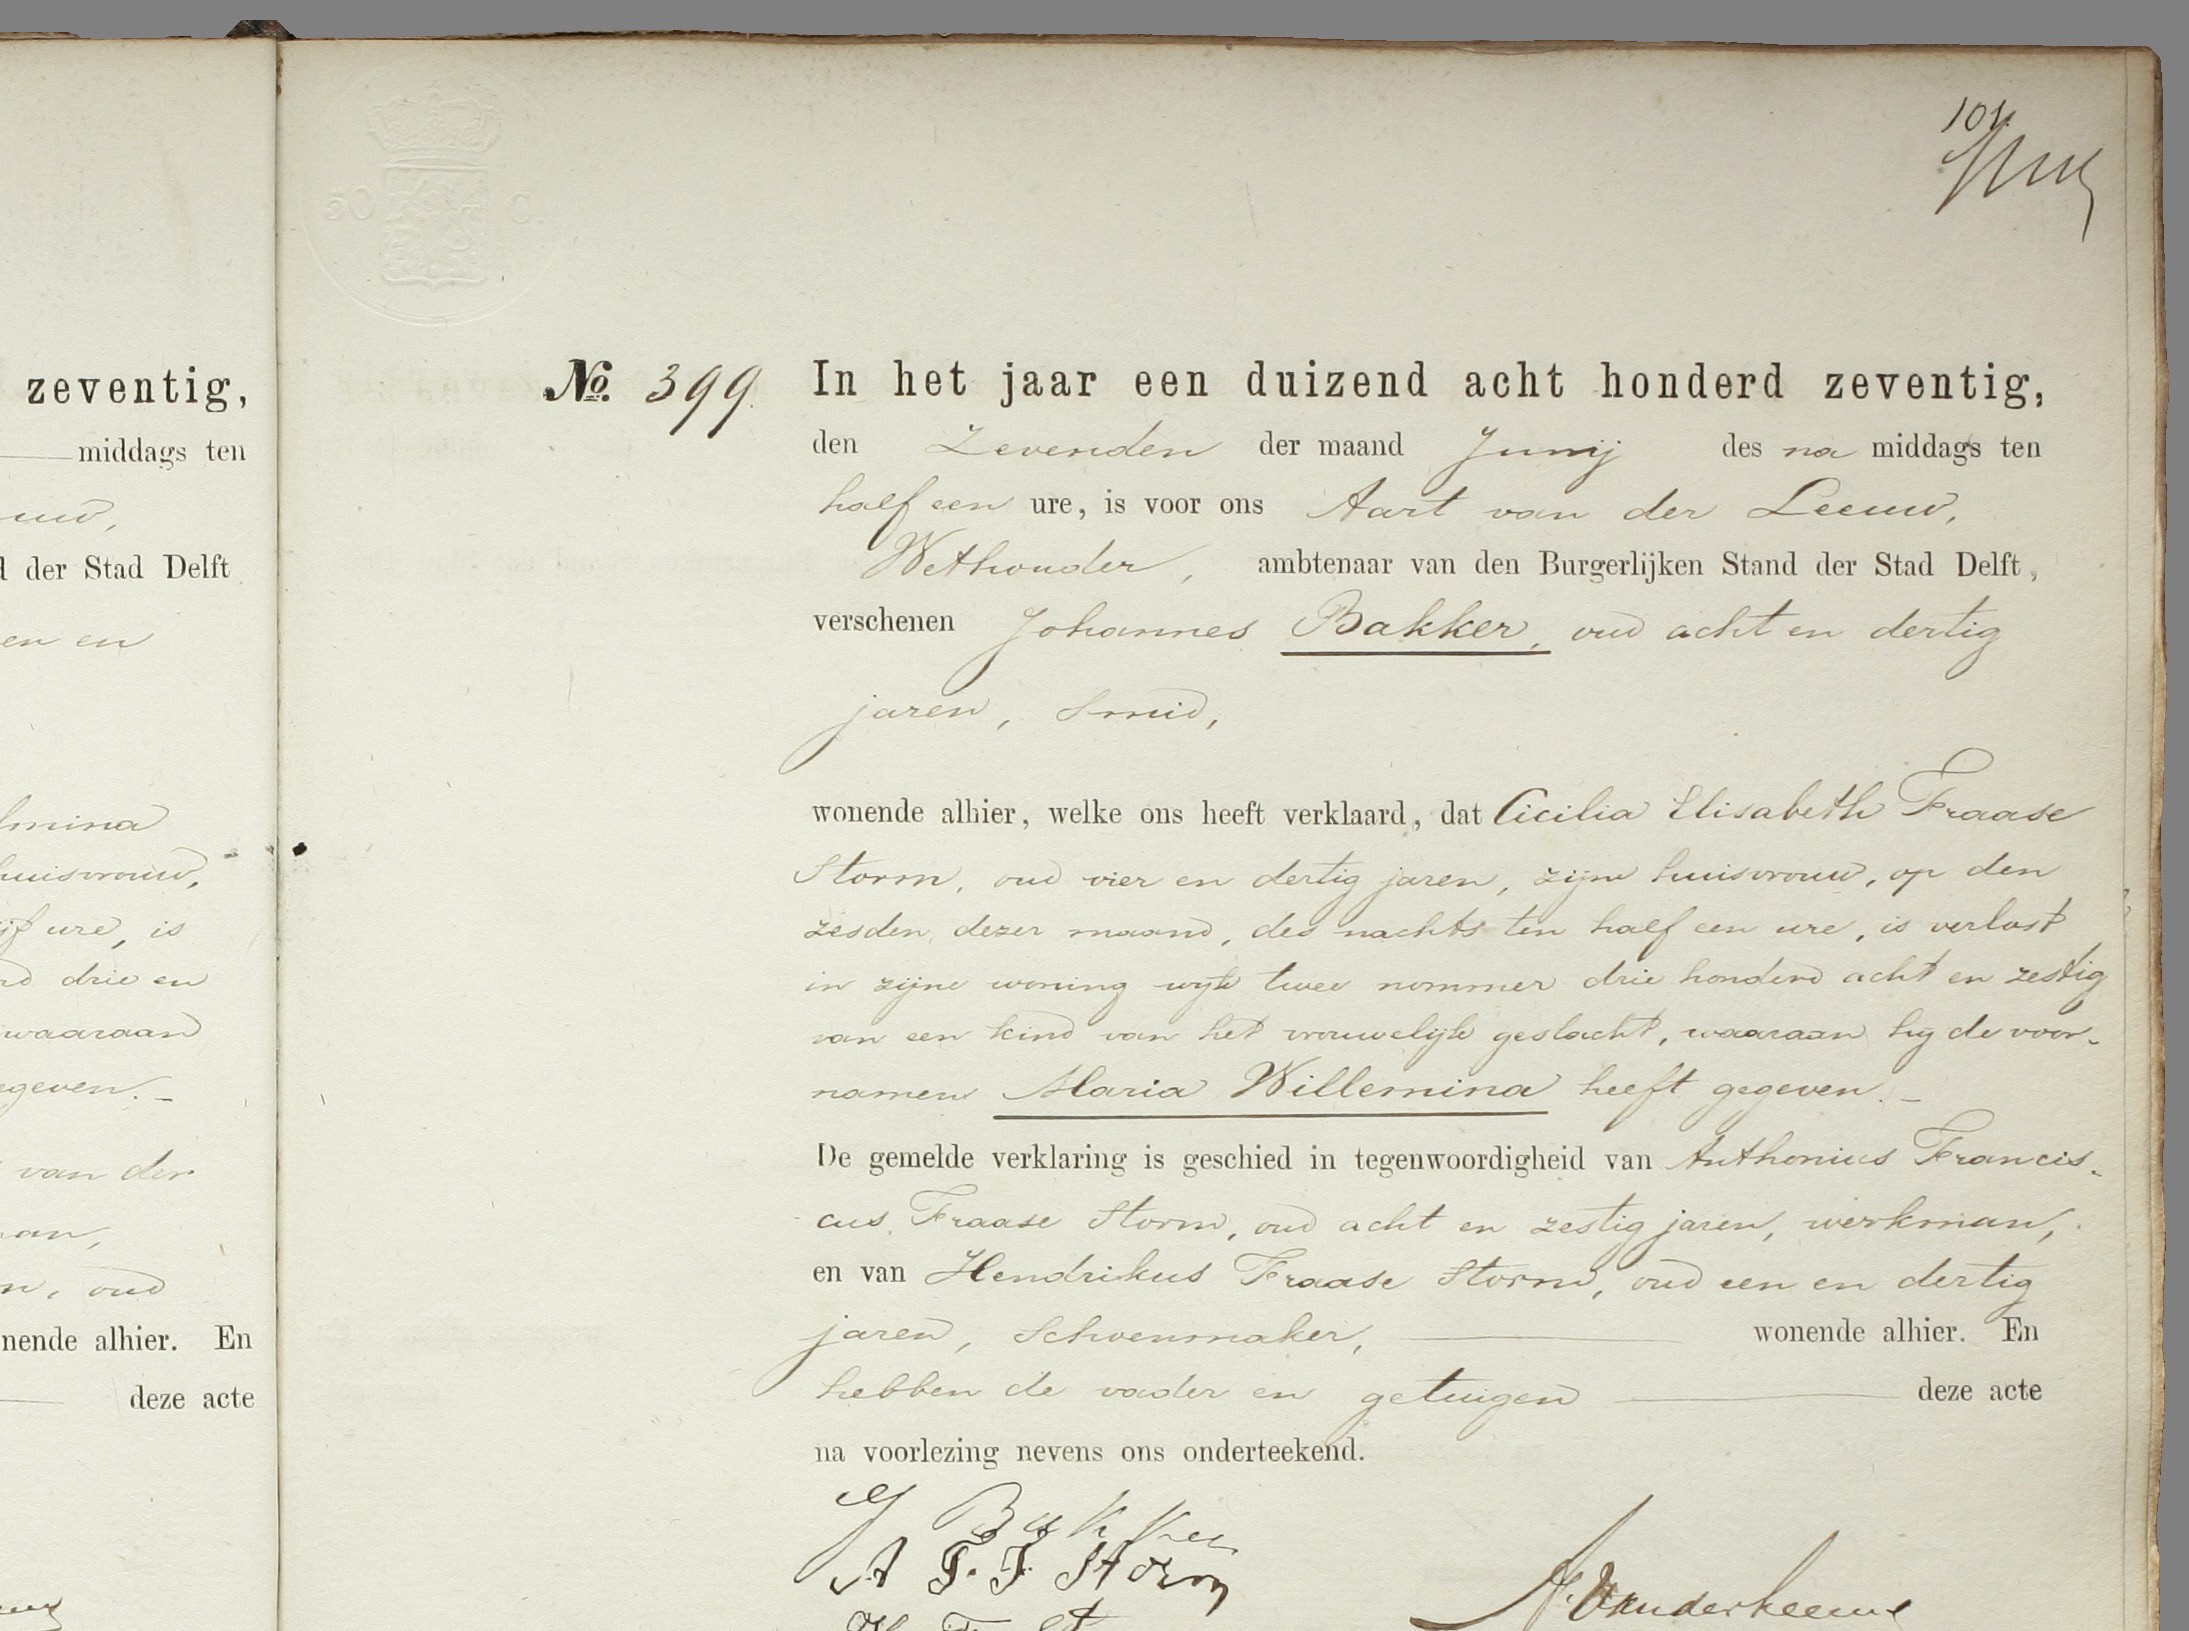 104.
50 C.
zeventig,
middags ten
uw,
der Stad Delft
en en
lmina
huisvrouw,
ijf ure, is
rd drie en
waaraan
egeven. _
van der
an,
n, oud
nende alhier. En
deze acte
No. 399. In het jaar een duizend acht honderd zeventig,
den Zevenden der maand Junij des na middags ten
half een ure, is voor ons Aart van der Leeuw,
Wethouder, ambtenaar van den Burgerlijken Stand der Stad Delft,
verschenen Johannes Bakker, oud acht en dertig
jaren, Smid,
wonende alhier, welke ons heeft verklaard, dat Cicilia Elisabeth Fraase
Storm, oud vier en dertig jaren, zijne huisvrouw, op den
zesden dezer maand, des nachts ten half een ure, is verlost
in zijne woning wijk twee nommer drie honderd acht en zestig
van een kind van het vrouwelijk geslacht, waaraan hij de voor-
namen Maria Willemina heeft gegeven. _
De gemelde verklaring is geschied in tegenwoordigheid van Anthonius Francis-
cus Fraase Storm, oud acht en zestig jaren, werkman,
en van Hendrikus Fraase Storm, oud een en dertig
jaren, Schoenmaker, wonende alhier. En
hebben de vader en getuigen deze acte
na voorlezing nevens ons onderteekend.
J Bakker
A F. F. Storm
A. Vanderleeuw
H F St